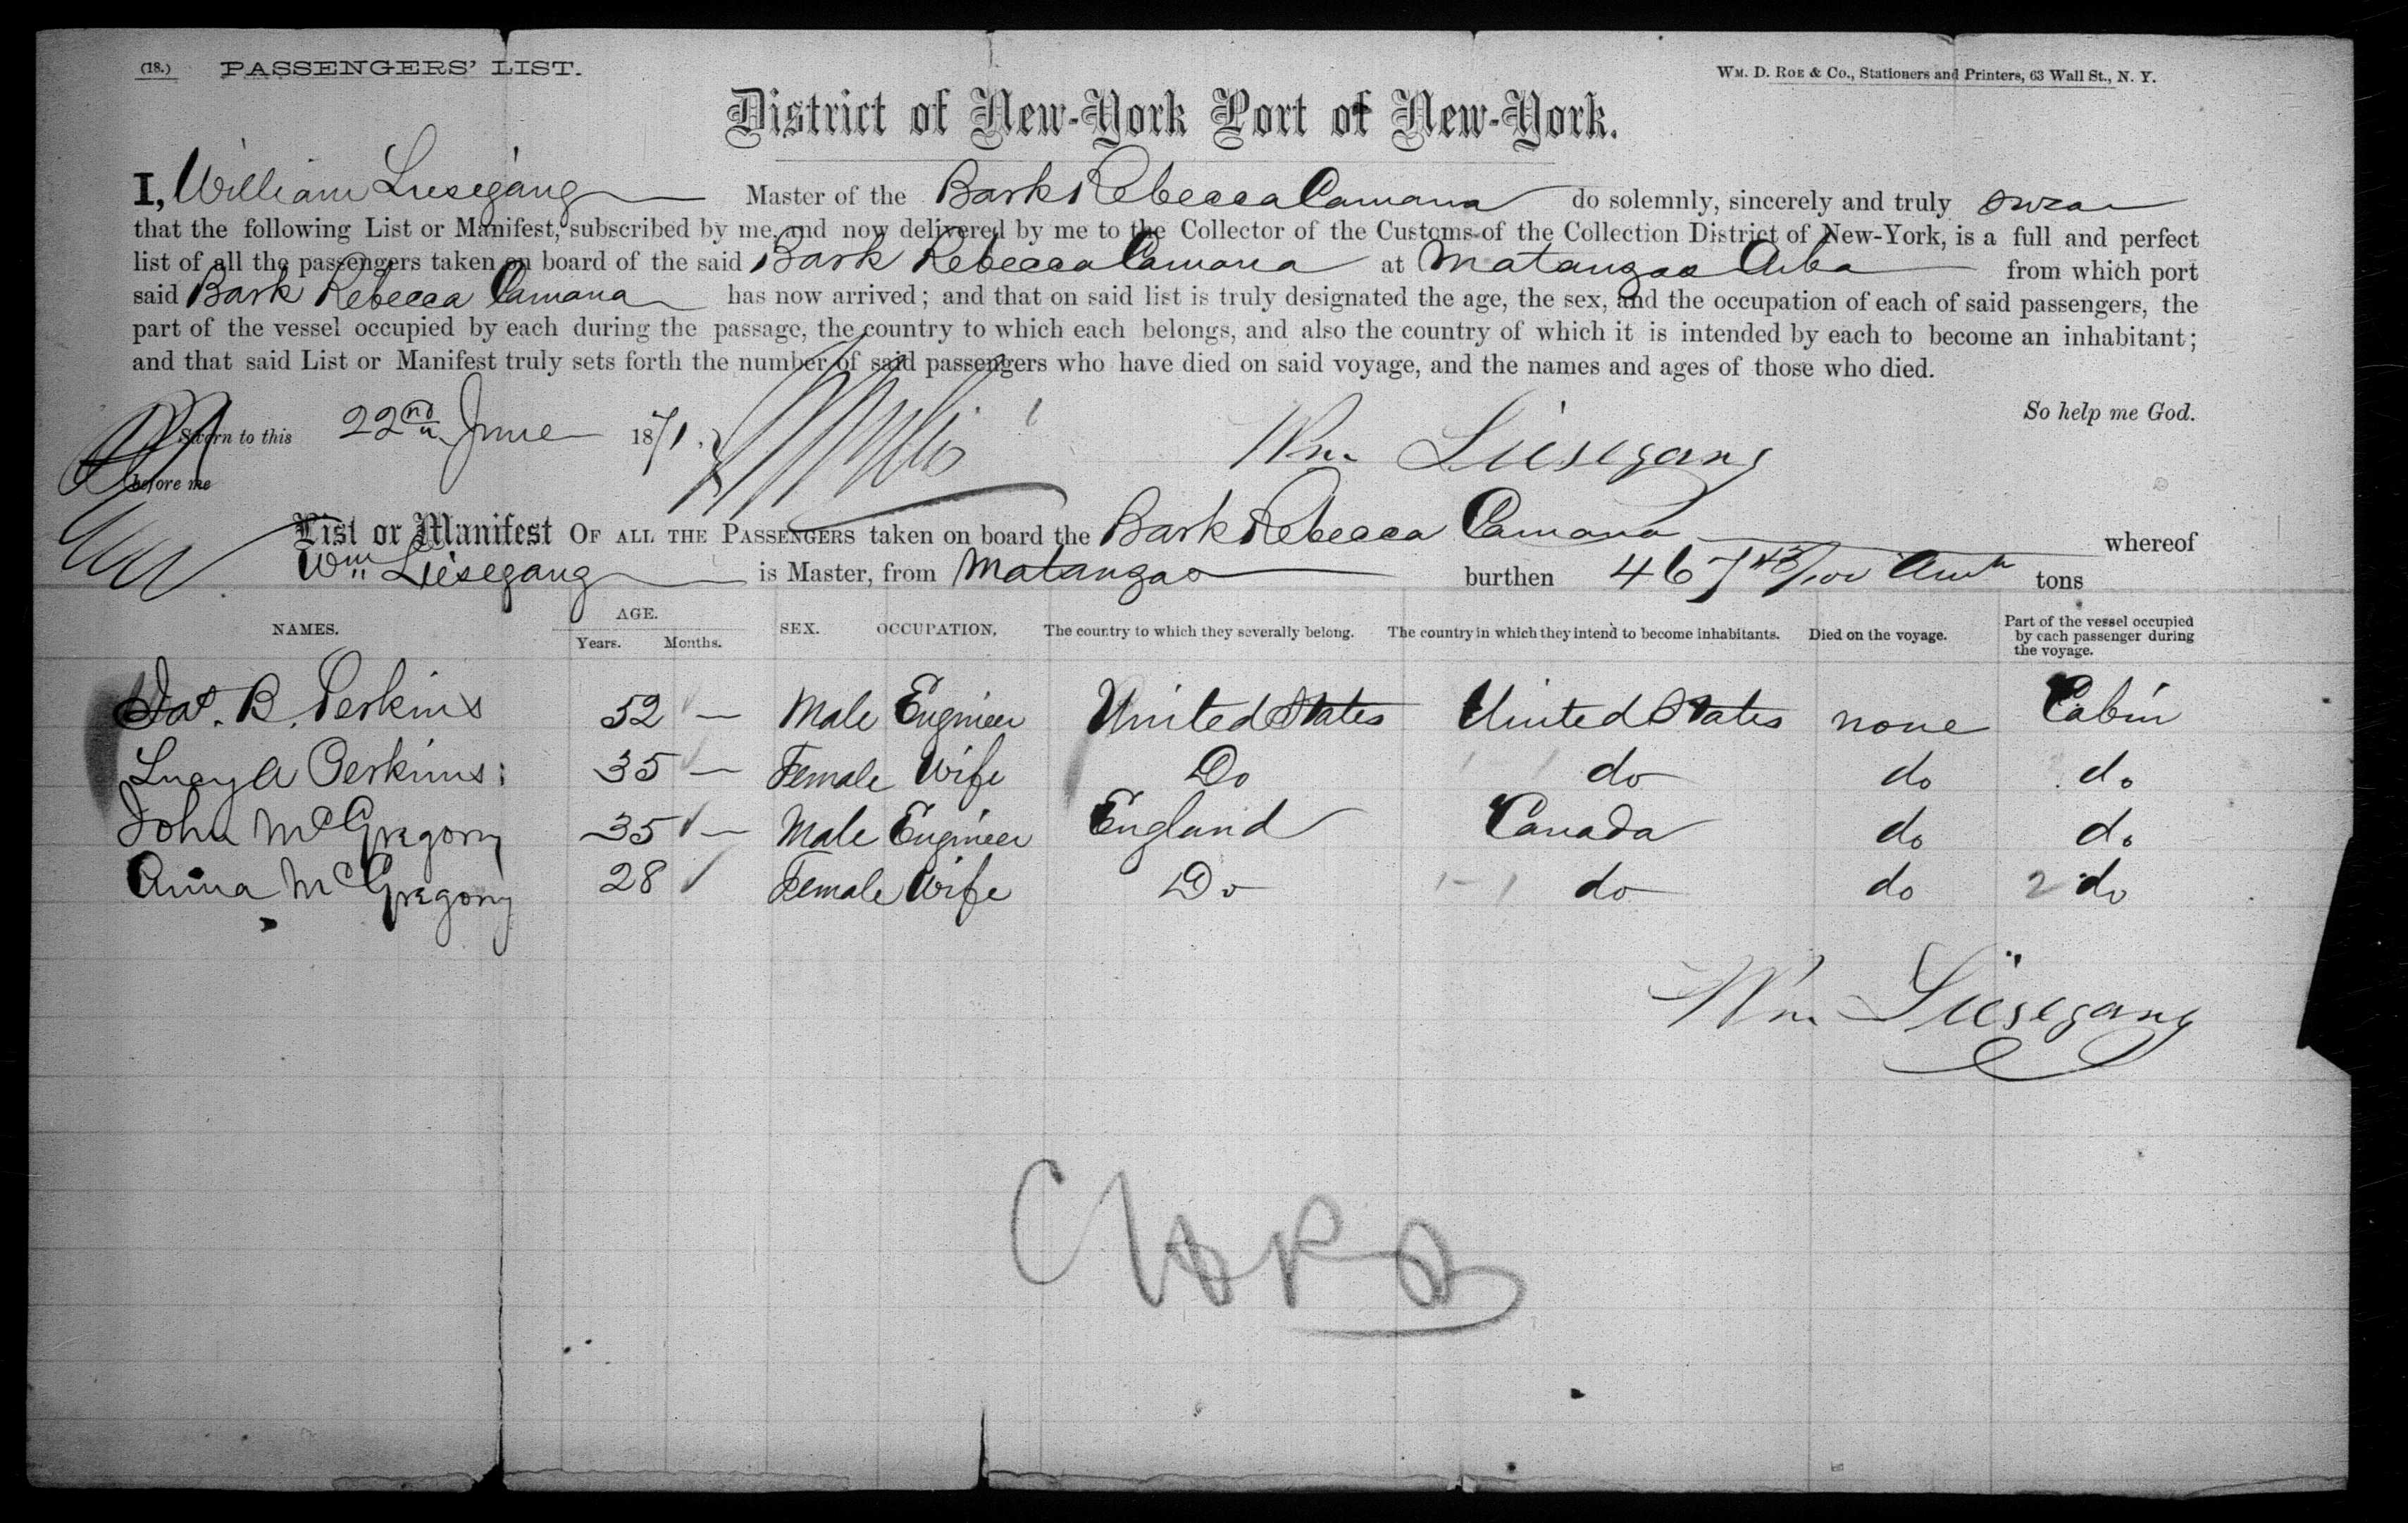 (18.) PASSENGERS' LIST. WM. D. ROE & CO., Stationers and Printers, 63 Wall St., N. Y.
District of New-York Port of New-York.
I, William Liesegang Master of the Bark Rebecca Camana do solemnly, sincerely and truly swear
that the following List or Manifest, subscribed by me, and now delivered by me to the Collector of the Customs of the Collection District of New-York, is a full and perfect
list of all the passengers taken on board of the said Bark Rebecca Camana at Matanzas Cuba from which port
said Bark Rebecca Camana has now arrived; and that on said list is truly designated the age, the sex, and the occupation of each of said passengers, the
part of the vessel occupied by each during the passage, the country to which each belongs, and also the country of which it is intended by each to become an inhabitant;
and that said List or Manifest truly sets forth the number of said passengers who have died on said voyage, and the names and ages of those who died.
So help me God.
Sworn to this 22nd June 1871. Wm. Liesegang
before me
List or Manifest OF ALL THE PASSENGERS taken on board the Bark Rebecca Camana whereof
Wm Liesegang is Master, from Matanzas burthen 467 43/100 tons
NAMES. AGE. SEX. OCCUPATION. The country to which they severally belong. The country in which they intend to become inhabitants. Died on the voyage. Part of the vessel occupied by each passenger during the voyage.
Years. Months.
Jas. B. Perkins 52 — Male Engineer United States United States none Cabin
Lucy A Perkins 35 — Female Wife Do do do do
John McGregory 35 — Male Engineer England Canada do do
Anna McGregory 28 Female Wife Do do do 2 do
Wm Liesegang